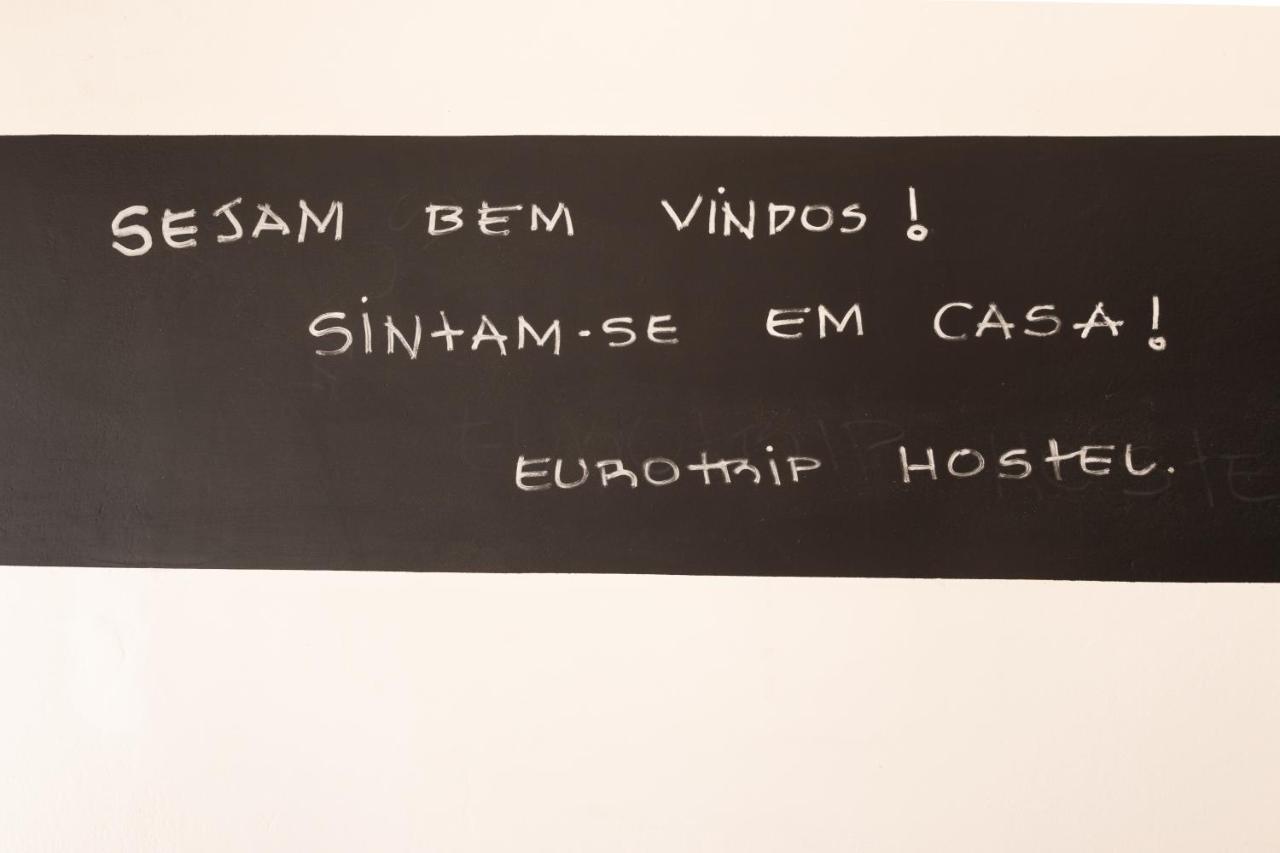 SEJAM BEM VINDOS!
SINTAM-SE EM CASA!
EUROTRIP HOSTEL.